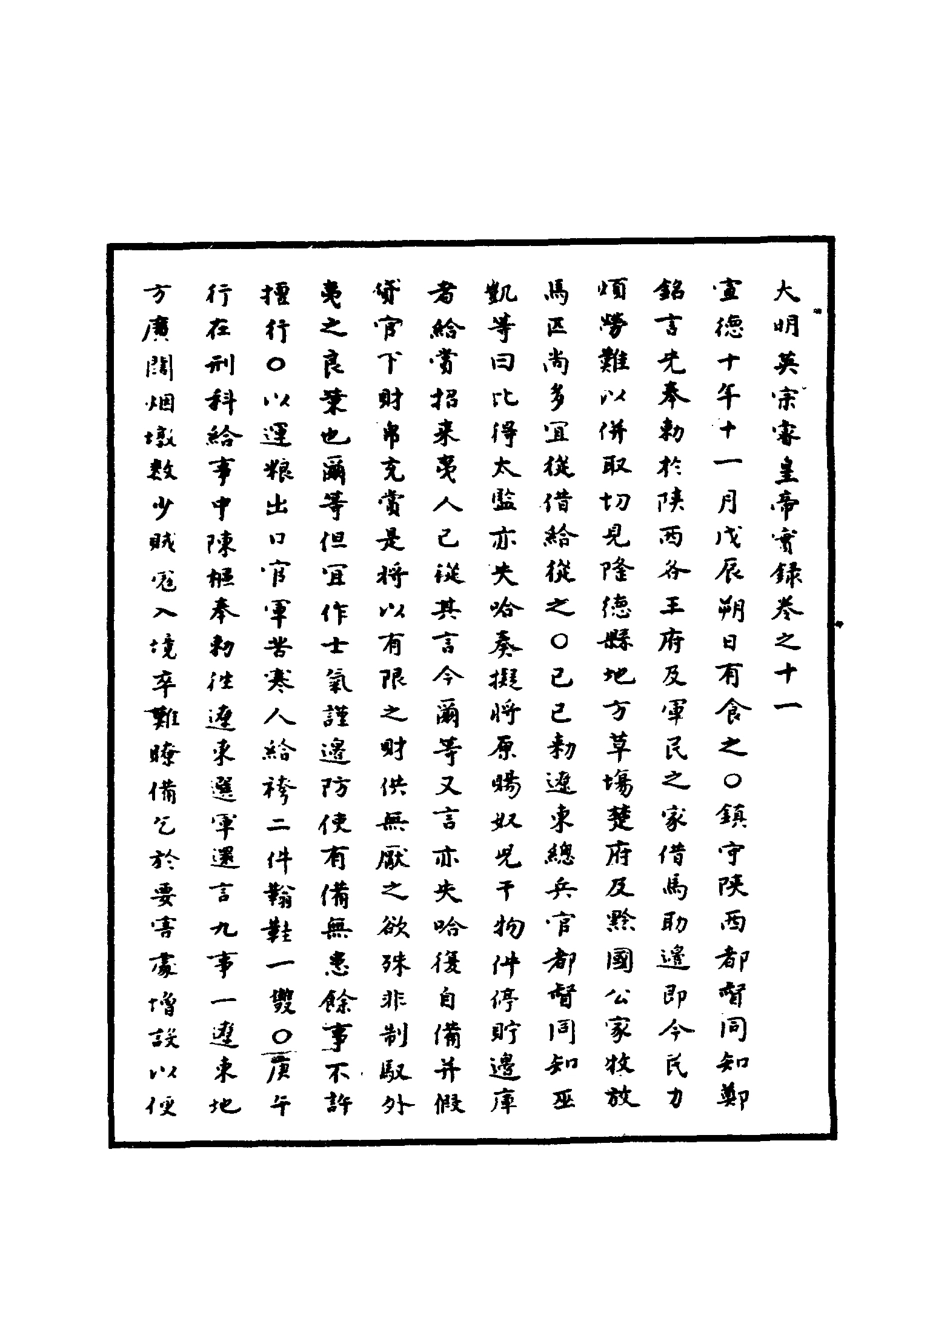 大明英宗睿皇帝實錄卷之十一
宣德十年十一月戊辰朔日有食之○鎮守陝西都督同知鄭
銘言先奉勅於陝西各王府及軍民之家借馬助邊即今民力
煩勞難以併取切見隆德縣地方草塲楚府及黔國公家牧放
馬匹尚多宜從借給從之○己巳勅遼東總兵官都督同知巫
凱等曰比得太監亦失哈奏擬將原賜奴兒干物件停貯邊庫
者給賞招來夷人已從其言今爾等又言亦失哈復自備并假
貸官下財帛充賞是將以有限之財供無厭之欲殊非制馭外
夷之良策也爾等但宜作士氣謹邊防使有備無患餘事不許
擅行○以運粮出口官軍苦寒人給袴二件鞋一雙○庚午
行在刑科給事中陳樞奉勅徃遼東選軍還言九事一遼東地
方廣闊烟墩數少賊寇入境卒難瞭備乞於要害處增設以便